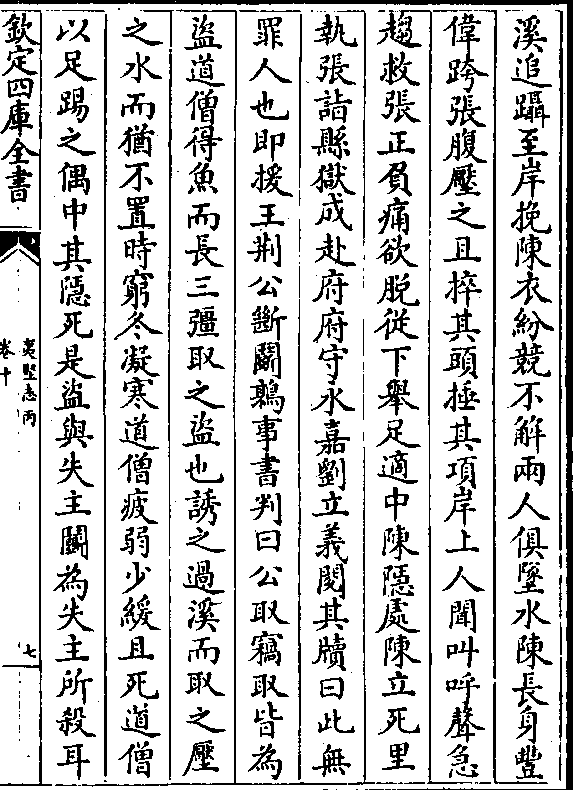 溪追躡至岸挽陳衣紛競不解兩人俱墜水陳長身豐
偉跨張腹壓之且捽其頭捶其項岸上人聞叫呼聲急
趨救張正負痛欲脱從下舉足適中陳隱處陳立死里
執張詣縣獄成赴府府守永嘉劉立義閱其牘曰此無
罪人也即援王荆公斷鬭鶉事書判曰公取竊取皆為
盜道僧得魚而長三彊取之盜也誘之過溪而取之壓
之水而猶不置時窮冬凝寒道僧疲弱少緩且死道僧
以足踢之偶中其隱死是盜與失主鬭為失主所殺耳
欽定四庫全書
夷堅志丙
卷十
七